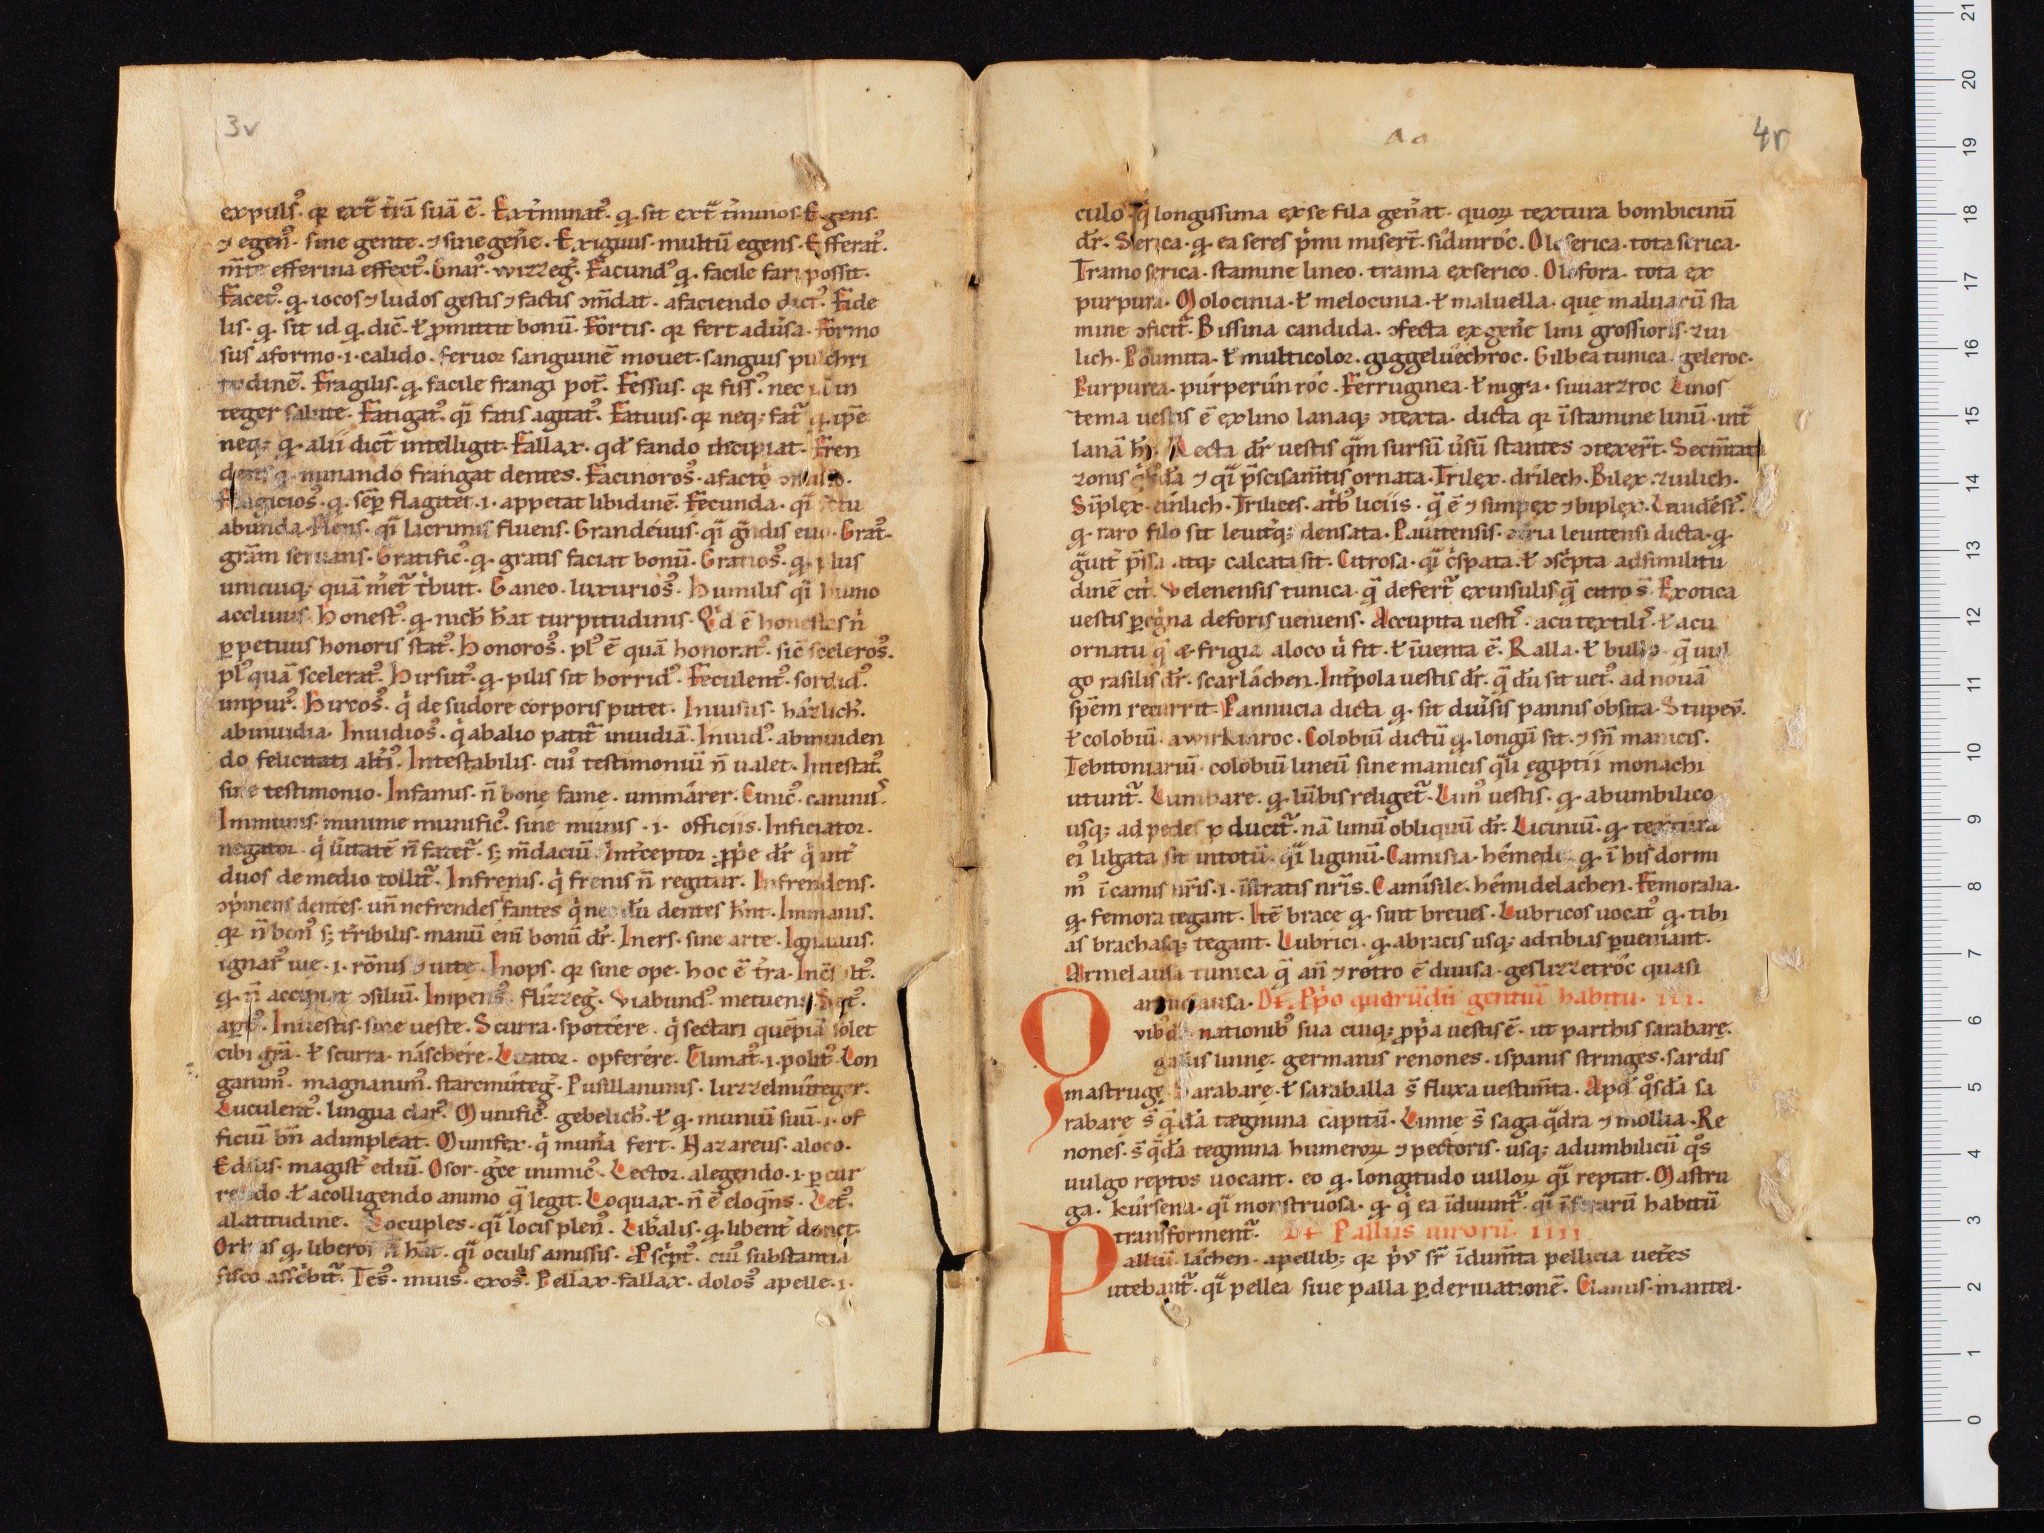 3v
expulsꝰ. qr ext͛ t͛rā suā ē. Ext͛minatꝰ. q. sit ext͛ t͛minos. Egens.
⁊ egenꝰ. sine gente. ⁊ sine gen͛e. Exiguus. multū egens. Efferatꝰ.
efferina effectꝰ. Gnarꝰ. wizzeg͛. Facundꝰ q. facile fari possit.
Facetꝰ. q. iocos ⁊ ludos gestis ⁊ factis ɔm̄dat. a faciendo dictꝰ. Fide
lis. q. sit id q. dic̄. ł ꝓmittit bonū. Fortis. qr fert adu͛sa. Formo
sus a formo .i. calido. feruor sanguinē mouet. sanguis pulchri
tudinē. Fragilis. q. facile frangi pot̄. Fessus. qr fissꝰ. nec in
teger salute. Fatigatꝰ. qi͂ fatis agitatꝰ. Fatuus. qr neq; fat͛ q. ip̄e
neq; q. alii dict̄ intelligit. Fallax. qd̛ fando decipiat. Fren
dens q. minando frangat dentes. Facinorosꝰ. a facto
Flagiciosꝰ. q. sep̄ flagitet .i. appetat libidinē. Fecunda. qi͂ fetu
abunda. Flens. qi͂ lacrimis fluens. Grandeuus. qi͂ g͛ndis euo. Gratꝰ.
gram̄ seruans. Gratificꝰ. q. gratis faciat bonū. Graciosꝰ. q. plus
unicuiq; quā m͛et͛ t͛buit. Ganeo. luxuriosꝰ. Humilis qi͂ humo
accliuus. Honestꝰ. q. nich̄ h̄at turpitudinis. Qd̛ ē honestas n̄
ꝑpetuus honoris statꝰ. Honorosꝰ. plꝰ ē quā honoratꝰ. sic̄ scelerosꝰ.
plꝰ quā sceleratꝰ. Hirsutꝰ. q. pilis sit horridꝰ. Feculentꝰ. sordidꝰ.
inpurꝰ. Hircosꝰ. q̇ de sudore corporis putet. Inuisus. házlich͛.
ab inuidia. Inuidiosꝰ. q̇ ab alio patit͛ inuidiā. Inuidꝰ. ab inuiden
do felicitati alt͛iꝰ. Intestabilis. cuiꝰ testimoniū n̄ ualet. Intestatꝰ.
sine testimonio. Infamis. n̄ bonę famę. ummárer. Cinicꝰ. caninꝰ.
Immunis. minime munificꝰ. sine muniis .i. officiis. Inficiator.
negator. q̇ u͛itatē n̄ fatet͛. s; m̄daciū. Int͛ceptor. ꝓp̄e dr͛ q̇ int͛
duos de medio tollit͛. Infrenis. q̇ frenis n̄ regitur. Infrendens.
ɔp͛mens dentes. un̄ nefrendes fantes q̇ necdū dentes h̄nt. Inmanis.
qr n̄ bonꝰ s; t͛ribilis. manū eni̅ bonū dr͛. Iners. sine arte. Ignauus.
ignarꝰ uię .i. rōnis ⁊ uitę. Inops. qr sine ope. hoc ē t͛ra.
q. n̄ accipiat ɔsiliū. Inpensꝰ. flízzeg͛. Viabundꝰ. metuens.
aptꝰ. Inuestis. sine ueste. Scurra. spottére. q̇ sectari quēpiā solet
cibi gr̄a. ł scurra. náschére. opferére. Climatꝰ .i. politꝰ. Lon
ganimꝰ. magnanimꝰ. starcmúteg͛. Pusillanimis. luzzelmúteger.
Luculentꝰ. lingua clarꝰ. Munificꝰ. gebelich͛. ł q. muniū suū .i. of
ficiū bn̄ adimpleat. Munifex. q̇ mun͛a fert. Nazareus. a loco.
Edilis. magist͛ ediū. Osor. gc͛e inimicꝰ. Lector. a legendo .i. ꝑcur
rendo ł a colligendo animo q̄ legit. Loquax. n̄ ē eloq̄ns. Letꝰ.
a latitudine. Locuples. qi͂ locis plenꝰ. Liberalis. q. libent͛ donet.
Orbus q. liberos n̄ h̄at. qi͂ oculis amissis. Pscpt͛ꝰ. cuiꝰ substantia
fisco assc͛bit͛. Tesꝰ. muisꝰ. exosꝰ. Pellax. fallax. dolosꝰ a pelle .i.
4r
culo. q̄ longissima ex se fila gen͛at. quoꝝ textura bombicinū
dr͛. Serica. q. ea seres p͛mi miser̄t. sídinróc. Oloserica. tota serica.
Tramoserica. stamine lineo. trama ex serico. Olofora. tota ex
purpura. Molocinia. ł melocinia. ł maluella. quę maluarū sta
mine ɔficit͛. Bissina candida. ɔfecta ex gen͛e lini grossioris. zui
lich. Polimita. ł multicolor. giggelúechroc. Gilbea tunica. geleroc.
Purpurea. púrperín róc. Ferruginea. ł nigra. suuarzroc Linos
tema uestis ē ex lino lanaq; ɔtexta. dicta qr īstamine linū. int͛
lanā h̄. Recta dr͛ uestis q̄m sursū u͛sū stantes ɔtexer̄t. Secm̄tata
zonis ⁊ qi͂ p͛scisam̄tis ornata. Trilex. drílech. Bilex. zuilich.
Simplex. einlich. Trilices. a trib liciis. q̄ ē ⁊ simpex ⁊ biplex. Leuidēsiꝰ.
q. raro filo sit leuit͛q; densata. Pauitensis. ɔtria leuitensi dicta. q.
g͛uit͛ p͛ssa atq; calcata sit. Citrosa. qi͂ c͛spata. ł ɔsc͛pta ad similitu
dinē cit͛. Velenensis tunica. q̄ defert͛ ex insulis q̄ citro s̄. Exotica
uestis ꝑeg͛na deforis ueniens. Accupita uestꝰ. acu textilꝰ. ł acu
ornatu q̄ ⁊ frigia a loco u͛ fit. ł i̅uenta ē. Ralla. ł q̄ uul
go rasilis dr͛. scarláchen. Int͛pola uestis dr͛. q̄ dū sit uetꝰ. ad nouā
sp̄em recurrit. Pannucia dicta q. sit diu͛sis pannis obsita. Stupeū.
ł colobiū. awirkinroc. Colobiū dictū q. longū sit. ⁊ sn̄ manicis.
Lebitoniariū. colobiū lineū sine manicis q̄ū ęgiptii monachi
utunt͛. Lumbare. q. lūbis religet͛. Limꝰ uestis. q. ab umbilico
usq; ad pedes ꝓducit͛. nā limū obliquū dr͛. Liciniū. q. textura
eiꝰ ligata sit in totū. qi͂ liginū. Camisia. hémedi q. i̅ his dormi
mꝰ i̅ camis nr̄is .i. i̅ stratis nr̄is. Camísile. hémidelachen. Femoralia.
q. femora tegant. Itē bracę q. sint breues. Lubricos uocatꝰ q. tibi
as brachasq; tegant. Lubrici. q. a bracis usq; ad tibias ꝑueniant.
Armelausa tunica q̄ an̄ ⁊ retro ē diuisa. geslizzetróc quasi
armiclausa. De Pp͛o quorūdū gentiū habitu. III.
Quibꝰd nationibꝰ sua cuiq; ꝓp͛a uestis ē. ut parthis sarabarę.
gallis linnę. germanis renones. ispanis stringes. sardis
mastrugę. Sarabarę. ł saraballa s̄ fluxa uestim̄ta. Apd̛ qͦsdā sa
rabarę s̄ q̄dā tegmina capitū. Linnę s̄ saga q̄dra ⁊ mollia. Re
nones. s̄ q̄dā tegmina humeroꝝ ⁊ pectoris. usq; ad umbilicū qͦs
uulgo reptos uocant. eo q. longitudo uilloꝝ qi͂ reptat. Mastru
ga. kúrsena. qi͂ monstruosa. q. q̇ ea i̅duunt͛. qi͂ i̅ ferarū habitū
transforment͛. De Palliis uirorū. IIII
Palliū. láchen. a pellib; qr p͛us sr̄ i̅dum̄ta pellicia uet͛es
utebant͛. qi͂ pellea siue palla ꝑ deriuationē. Clamis. mantel.
21
20
19
18
17
16
15
14
13
12
11
10
9
8
7
6
5
4
3
2
1
0